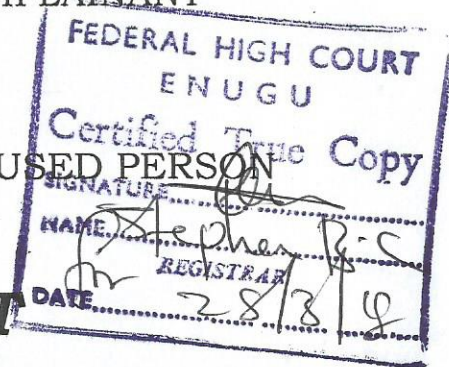 FEDERAL HIGH COURT
ENUGU
Certified True Copy
USED PERSON
SIGNATURE
NAME Stephen
REGISTRAR
for
DATE 28/3/